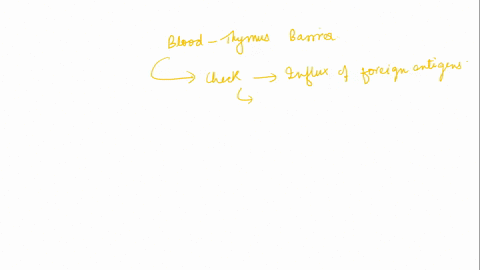 Blood - Thymus Barrier
→ Check → Influx of foreign antigens.